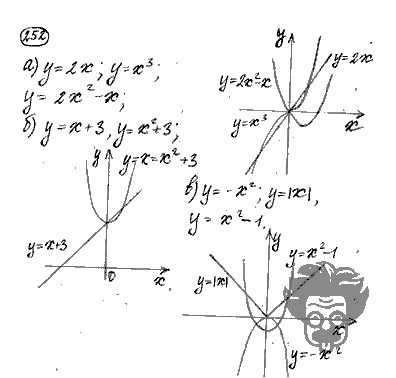 252
а) y = 2x; y = x³;
y = 2x² - x;
б) y = x+3, y = x²+3;
y
y = 2x
y = 2x² - x
y = x³
x
y
y = x = x² + 3
y = x+3
0
x
в) y = -x²; y = |x|,
y = x² - 1.
y
y = x² - 1
y = |x|
x
y = -x²